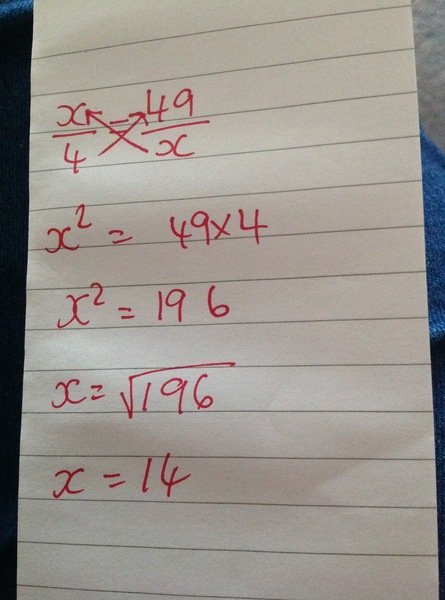 x/4 = 49/x
x² = 49×4
x² = 196
x = √196
x = 14